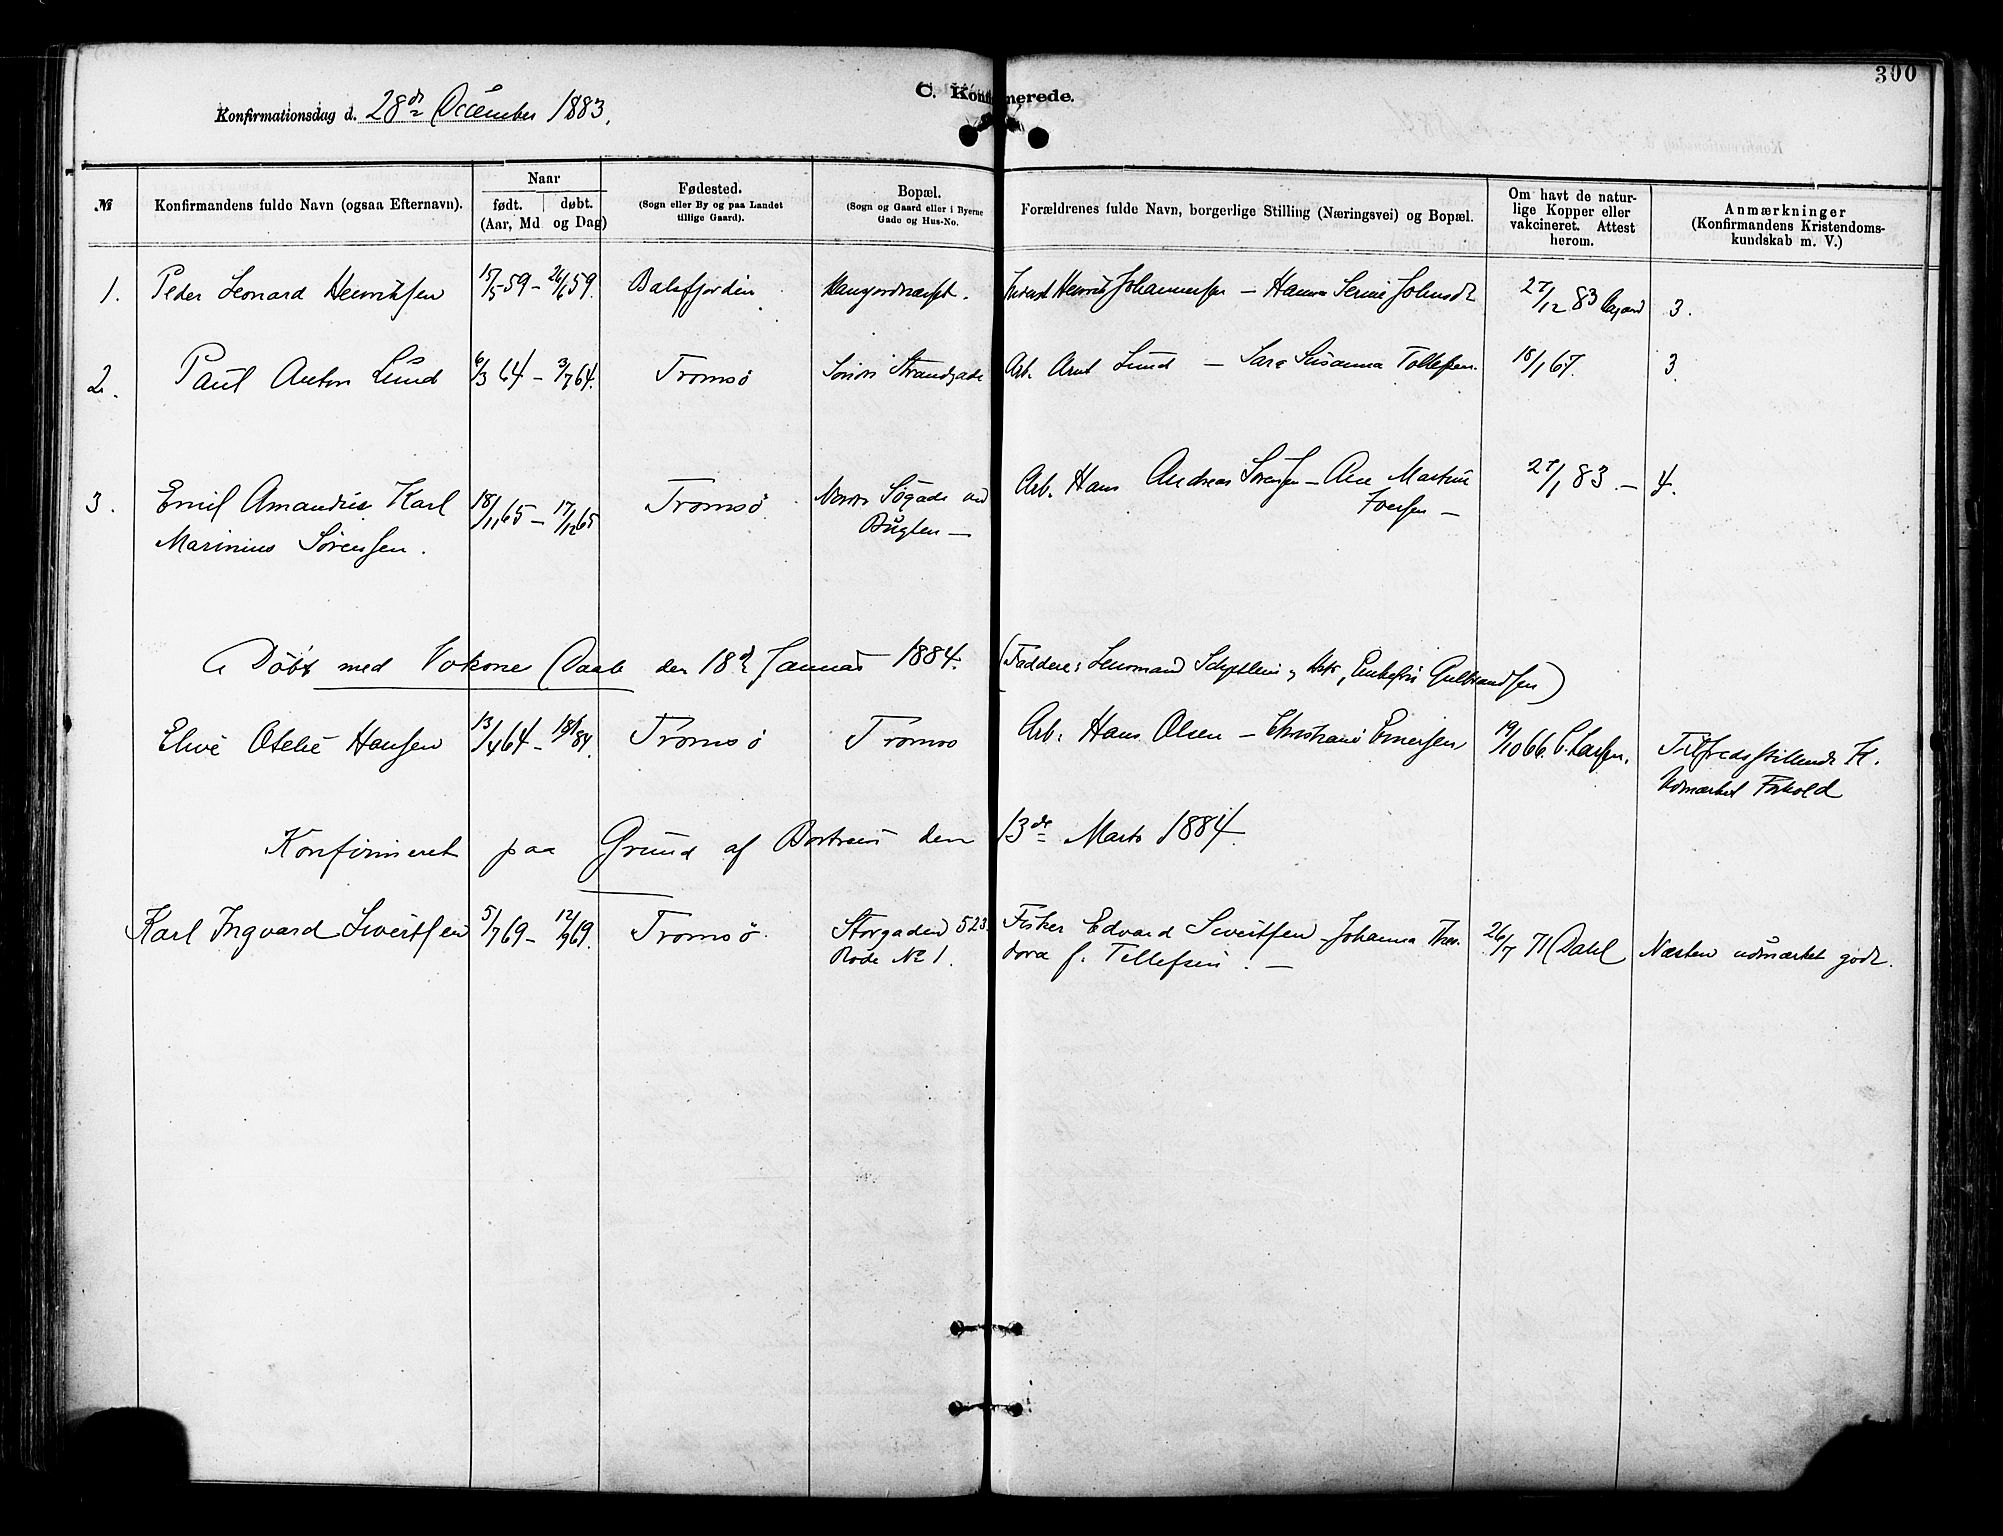 300
C. Konfirmerede.
Konfirmationsdag d. 28de December 1883.
№
Konfirmandens fulde Navn (ogsaa Efternavn).
Naar
født. døbt.
(Aar, Md og Dag)
Fødested.
(Sogn eller By og paa Landet
tillige Gaard).
Bopæl.
(Sogn og Gaard eller i Byerne
Gade og Hus-No.
Forældrenes fulde Navn, borgerlige Stilling (Næringsvei) og Bopæl.
Om havt de natur-
lige Kopper eller
vakcineret. Attest
herom.
Anmærkninger
(Konfirmandens Kristendoms-
kundskab m. V.)
1. Peder Leonard Henriksen 15/5 59 - 26/6 59. Balsfjorden Henrik Johannessen - Hanna 27/12 83 3.
2. Paul Anton Lund 6/3 64 - 3/7 64. Tromsö Søndre Strandgade Arb. Arnt Lund - Sara Susanna Tollefsen. 18/1 67. 3.
3. Emil Amandus Karl 18/11 65 - 17/12 65 Tromsö Nordre Søgade ved Arb. Hans Andreas Sørensen - Ane Martine 27/1 83. - 4.
Marinius Sørensen. Bugten - Iversen -
Døbt med Voksne Daab den 18de Januar 1884. (Faddere: Lensmand , Enkefru Gulbrandsen)
Elvine Otelie Hansen 13/4 64 - 18/1 84. Tromsö Tromsö Arb. Hans Olsen - Christiane Einersen 19/10 66. C. Larsen. Tilfredsstillende K.
Udmærket Forhold
Konfirmeret paa Grund af Bortreise den 13de Marts 1884.
Karl Ingvard Sivertsen 5/7 69 - 12/9 69. Tromsö. Storgaden 523. Fisker Edvard Sivertsen - Johanna Theo- 26/7 71 Dahl Næsten udmærket godt.
Rode № 1. dora f. Tellefsen. -